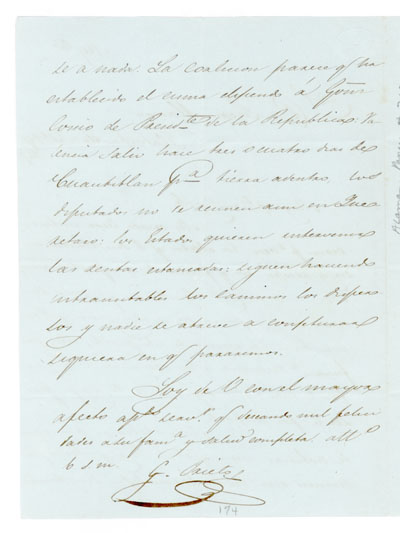 se a nada. La coalicion parece q. ha
establecido el
como de Presid.te de la Republica.
salio hace tres o cuatro dias de
Cuautitlan p.a tierra adentro. Los
diputados no se reunen aun en Que
retaro: los Estados quieren intervenir
las rentas estancadas: siguen haciendo
intransitables los caminos los disper
sos y nadie se atreve a conjeturar
siquiera en q. pararemos.
Soy de V. con el mayor
afecto ap.do serv.r q. deseando mil felici
dades a su fam.a y salud completa. att.o
b s m.
G. Prieto
174